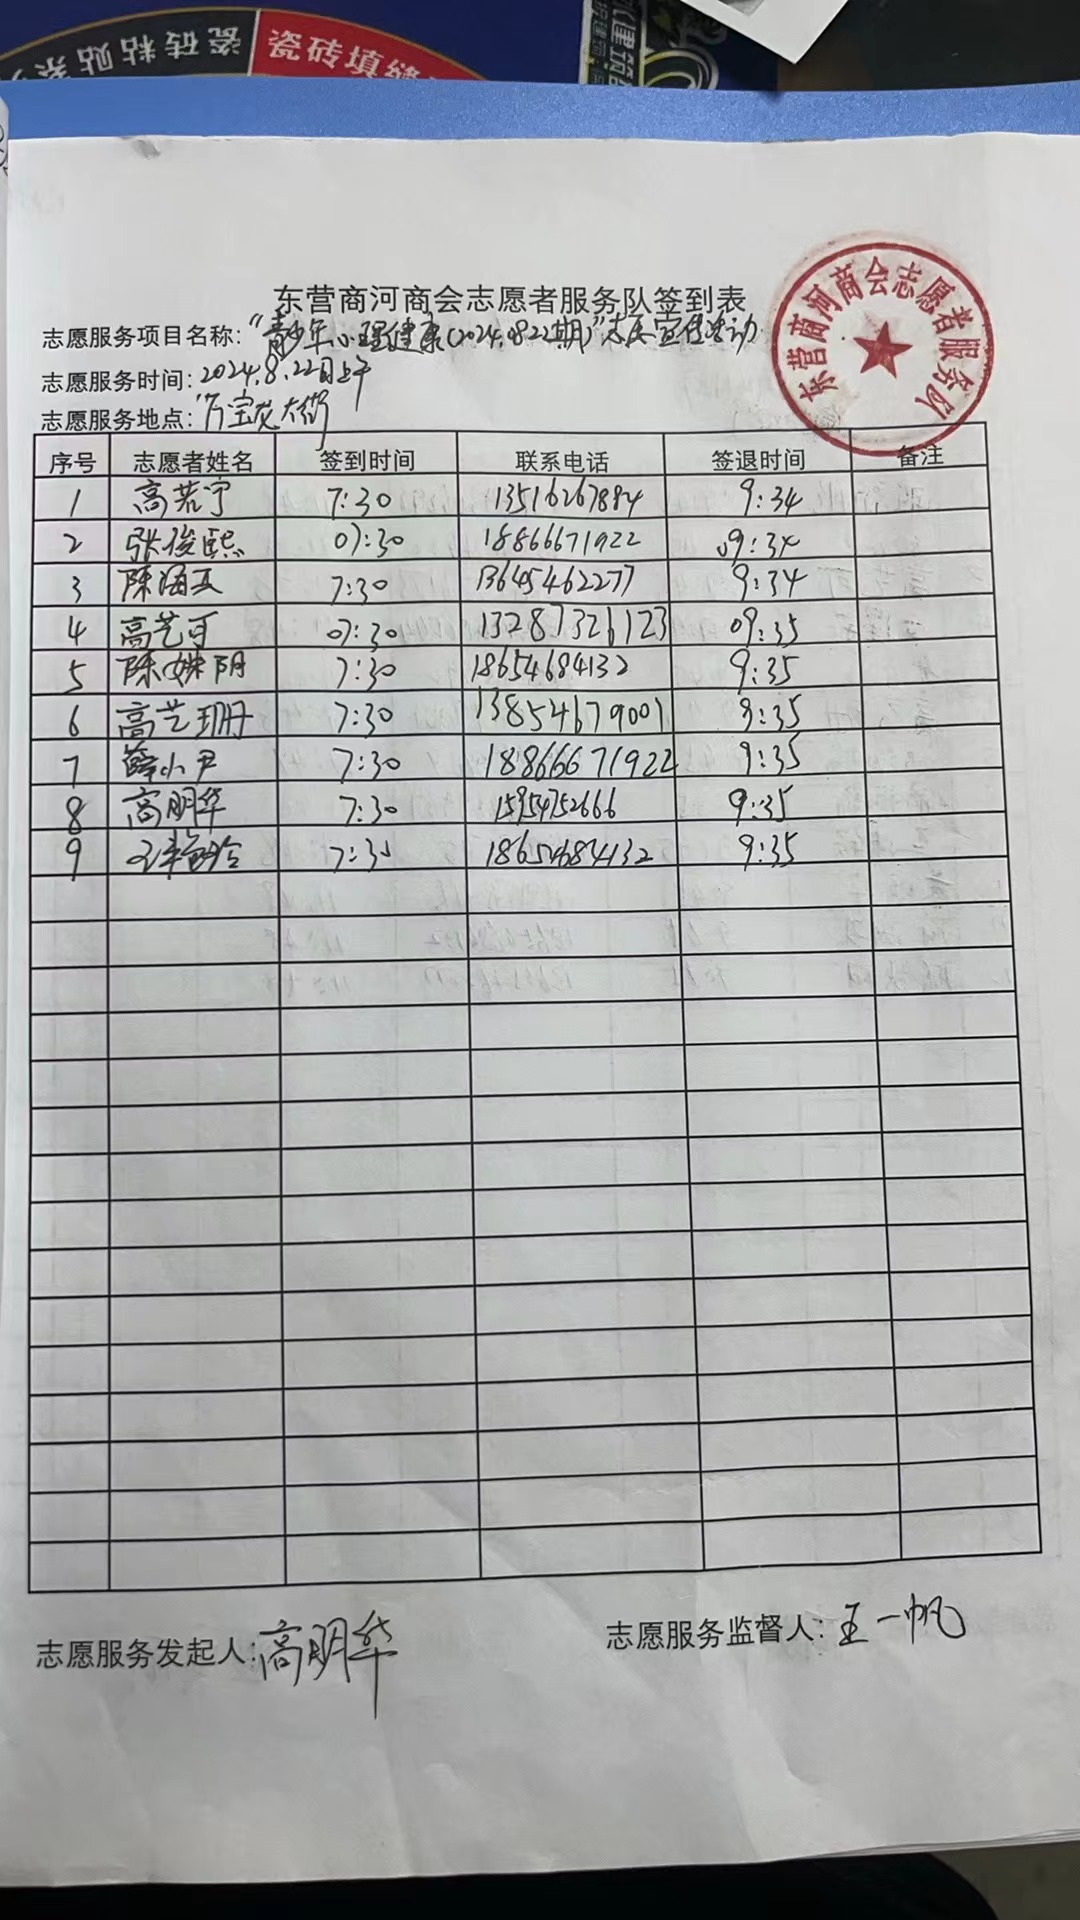 瓷砖粘贴系
瓷砖填缝
东营商河商会志愿者服务队
东营商河商会志愿者服务队签到表
志愿服务项目名称："青少年心理健康(2024.0822期)"志愿宣传活动
志愿服务时间：2024.8.22日上午
志愿服务地点：万宝花大街
序号 志愿者姓名 签到时间 联系电话 签退时间 备注
1 高若宁 7:30 13516267884 9:34
2 张俊熙 07:30 18866671922 09:34
3 陈海 7:30 13645462277 9:34
4 高艺可 07:30 13287326123 09:35
5 陈姝阴 7:30 18654684132 9:35
6 高艺珊 7:30 13854679001 9:35
7 薛小尹 7:30 18866671922 9:35
8 高明华 7:30 15954752666 9:35
9 7:35 18654684132 9:35
志愿服务发起人：高明华 志愿服务监督人：王一帆